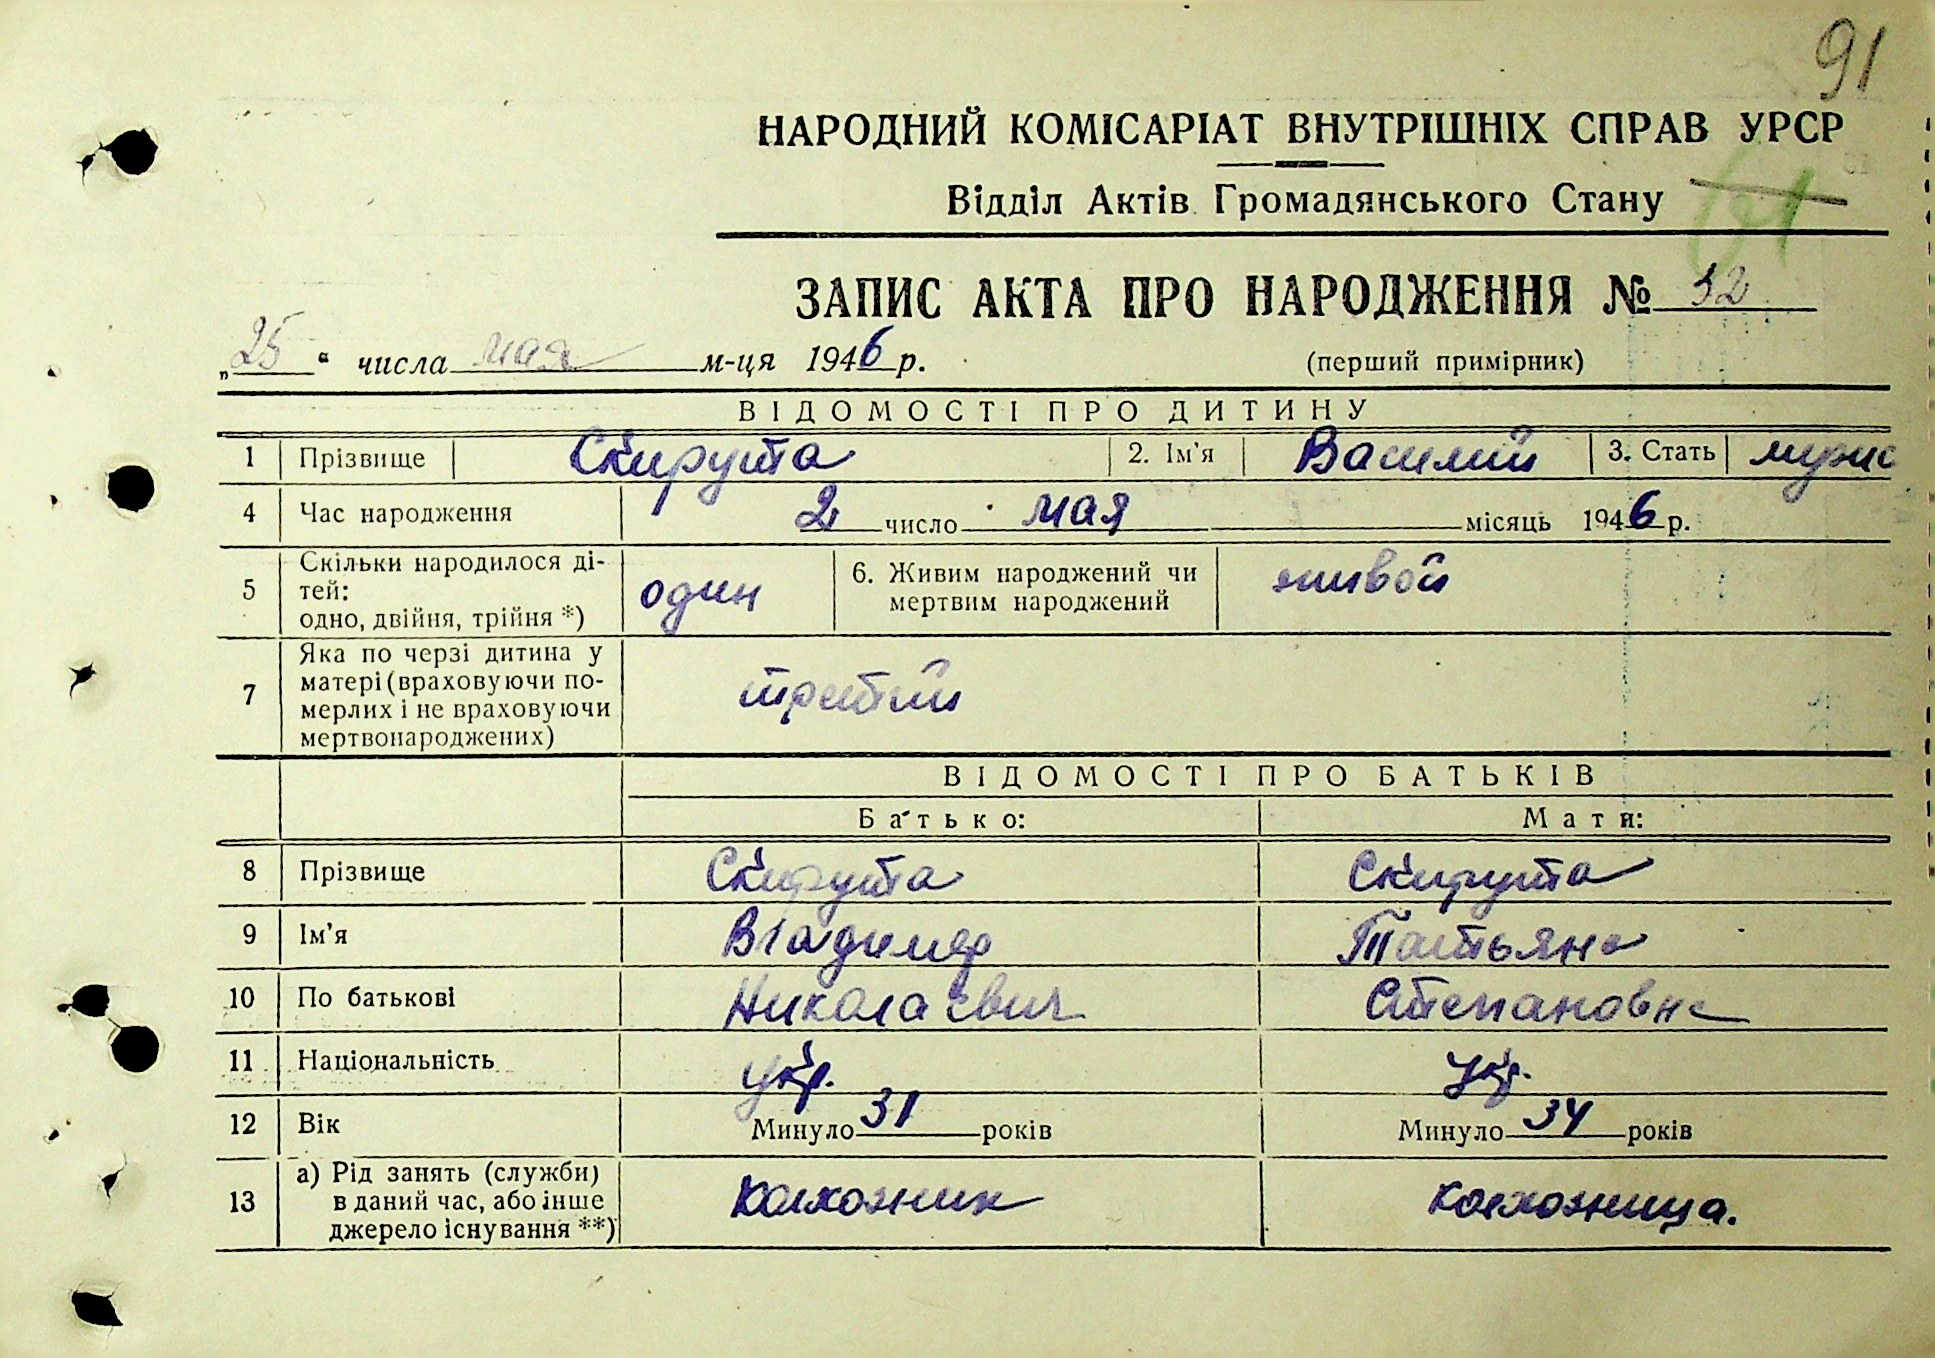 91
НАРОДНИЙ КОМІСАРІАТ ВНУТРІШНІХ СПРАВ УРСР
Відділ Актів Громадянського Стану
ЗАПИС АКТА ПРО НАРОДЖЕННЯ № 52
„25“ числа мая м-ця 1946 р. (перший примірник)
ВІДОМОСТІ ПРО ДИТИНУ
1 Прізвище Скирута 2. Ім'я Василий 3. Стать мужс
4 Час народження 2 число мая місяць 1946 р.
5 Скільки народилося ді-
тей:
одно, двійня, трійня *) один 6. Живим народжений чи
мертвим народжений живой
7 Яка по черзі дитина у
матері (враховуючи по-
мерлих і не враховуючи
мертвонароджених) третий
ВІДОМОСТІ ПРО БАТЬКІВ
Батько: Мати:
8 Прізвище Скирута Скирута
9 Ім'я Владимер Татьяна
10 По батькові Николаевич Степановна
11 Національність укр. укр.
12 Вік Минуло 31 років Минуло 34 років
13 а) Рід занять (служби)
в даний час, або інше
джерело існування **) колхозник колхозница.